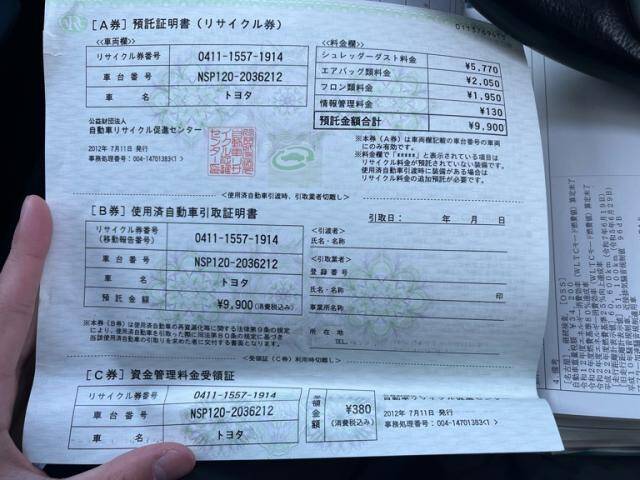 [A券] 預託証明書 (リサイクル券)
≪車両欄≫
リサイクル券番号 0411-1557-1914
車台番号 NSP120-2036212
車名 トヨタ
≪料金欄≫
シュレッダーダスト料金 ¥5,770
エアバッグ類料金 ¥2,050
フロン類料金 ¥1,950
情報管理料金 ¥130
預託金額合計 ¥9,900
公益財団法人
自動車リサイクル促進センター
2012年 7月11日 発行
事務処理番号:004-14701383<1>
※本券(A券)は車両欄記載の車台番号の車両
にのみ有効です。
※料金欄で「*****」と表示されている項目は
リサイクル料金が預託されていない装備です。
使用済自動車引渡時に装備がある場合は
リサイクル料金の追加預託が必要です。
<使用済自動車引渡時、引取業者切離し>
[B券] 使用済自動車引取証明書
引取日: 年 月 日
リサイクル券番号
(移動報告番号) 0411-1557-1914
車台番号 NSP120-2036212
車名 トヨタ
預託金額 ¥9,900(消費税込み)
<引渡者>
氏名・名称
<引取業者>
登録番号
氏名・名称 印
事業所名称
所在地
TEL.
※本券(B券)は、使用済自動車の再資源化等に関する法律第9条の規定
により、使用済自動車を引取った際に同法第80条の規定に基づき
当該使用済自動車の引取りを求めた者に交付する書面となります。
<受領証(C券)利用時切離し>
[C券] 資金管理料金受領証
リサイクル券番号 0411-1557-1914
車台番号 NSP120-2036212
車名 トヨタ
金額 ¥380
(消費税込み)
自動車リサイクル促進センター
2012年 7月11日 発行
事務処理番号:004-14701383<1>